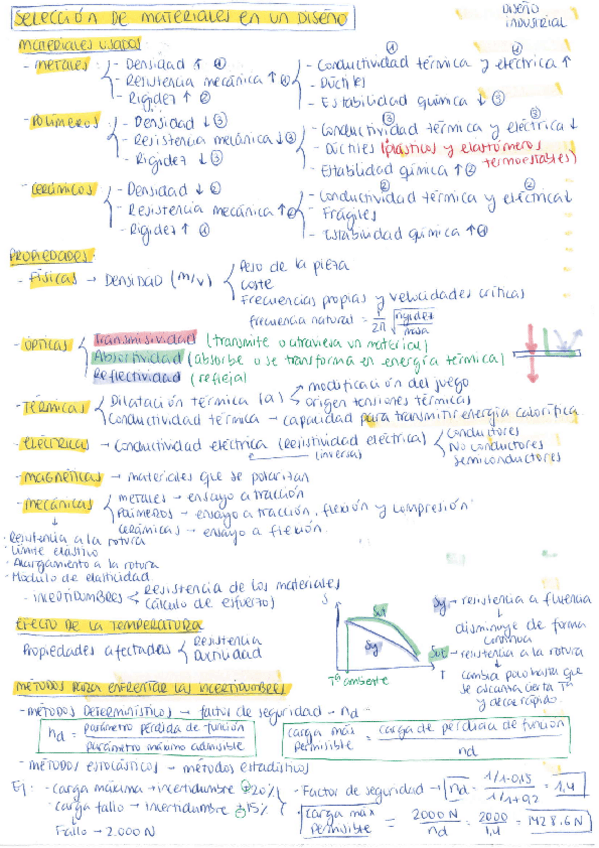 SELECCIÓN DE MATERIALES EN UN DISEÑO
DISEÑO INDUSTRIAL
MATERIALES USADOS
- METALES: - Densidad ↑ ①
- Resistencia mecánica ↑ ①
- Rigidez ↑ ②
- Conductividad térmica y eléctrica ↑ ①
- Dúctiles
- Estabilidad química ↓ ③
- POLÍMEROS: - Densidad ↓ ③
- Resistencia mecánica ↓ ③
- Rigidez ↓ ③
- Conductividad térmica y eléctrica ↓ ③
- Dúctiles (plásticos y elastómeros termoestables)
- Estabilidad química ↑ ②
- CERÁMICOS - Densidad ↓ ②
- Resistencia mecánica ↑
- Rigidez ↑ ①
- Conductividad térmica y eléctrica ↓ ②
- Frágiles
- Estabilidad química ↑ ①
PROPIEDADES:
- FÍSICAS → DENSIDAD (m/v)
Peso de la pieza
Coste
Frecuencias propias y velocidades críticas
frecuencia natural = 1/2π √rigidez/masa
- ÓPTICAS
Transmisividad (transmite o atraviesa un material)
Absortividad (absorbe o se transforma en energía térmica)
Reflectividad (refleja)
- TÉRMICAS
Dilatación térmica (a)
modificación del juego
origen tensiones térmicas
Conductividad térmica → capacidad para transmitir energía calorífica
- ELÉCTRICAS → Conductividad eléctrica (Resistividad eléctrica)
(inversa)
Conductores
No conductores
Semiconductores
- MAGNÉTICAS → materiales que se polarizan
- MECÁNICAS
metales → ensayo a tracción
Polímeros → ensayo a tracción, flexión y compresión
cerámicas → ensayo a flexión
· Resistencia a la rotura
· Límite elástico
· Alargamiento a la rotura
· Módulo de elasticidad
- INCERTIDUMBRES
Resistencia de los materiales
Cálculo de esfuerzos
S
Sut
Sy
Tª ambiente
T
Sy → resistencia a fluencia
disminuye de forma continua
Sut → resistencia a la rotura
cambia poco hasta que se alcanza cierta Tª y decae rápido
EFECTO DE LA TEMPERATURA
Propiedades afectadas
Resistencia
Ductilidad
MÉTODOS PARA ENFRENTAR LAS INCERTIDUMBRES
- MÉTODOS DETERMINÍSTICOS → factor de seguridad → nd -
nd = parámetro pérdida de función / parámetro máximo admisible
carga máx permisible = carga de pérdida de función / nd
- MÉTODOS ESTOCÁSTICOS → métodos estadísticos
Ej: - carga máxima → incertidumbre ±20%
- carga fallo → incertidumbre ±15%
Fallo → 2.000 N
- Factor de seguridad → nd = 1/1-0,15 / 1/1+0,2 = 1,4
- carga máx permisible = 2000 N / nd = 2000 / 1,4 = 1428.6 N